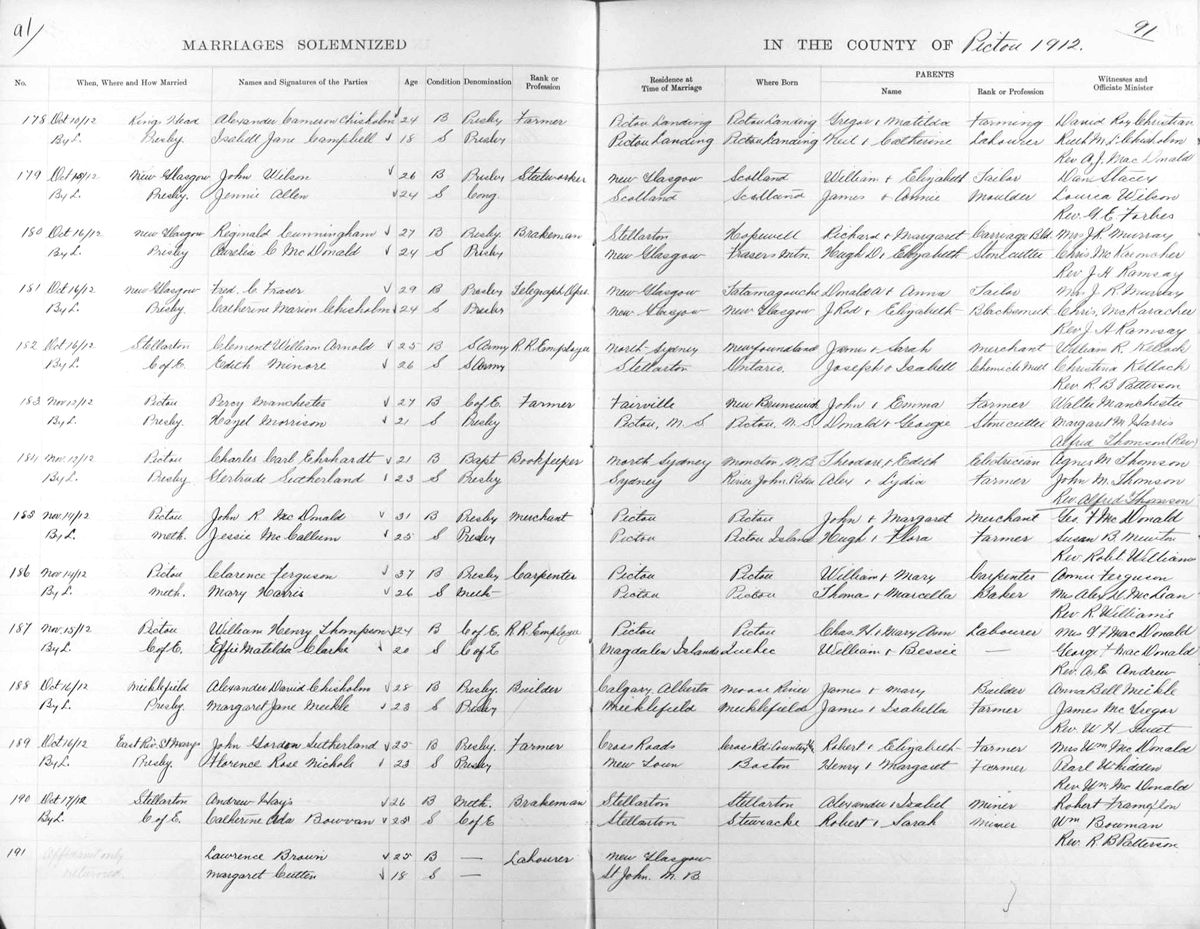 91
91
MARRIAGES SOLEMNIZED IN THE COUNTY OF Pictou 1912.
No. When, Where and How Married Names and Signatures of the Parties Age Condition Denomination Rank or Profession Residence at Time of Marriage Where Born PARENTS Name Rank or Profession Witnesses and Officiate Minister
178 Oct 10/12 Kings Head Alexander Cameron Chisholm 24 B Presby Farmer Pictou Landing Pictou Landing Gregor & Matilda Farming David Roy Christian
By L. Presby. Isabell Jane Campbell 18 S Presby Pictou Landing Pictou Landing Neil & Catherine Labourer Ruth M. L. Chisholm
Rev A. J. Mac Donald
179 Oct 15/12 New Glasgow John Wilson 26 B Presby Steelworker New Glasgow Scotland William & Elizabeth Tailor Dan Stacey
By L. Presby. Jennie Allen 24 S Cong. Scotland Scotland James & Annie Moulder Louisa Wilson
Rev. G. E. Forbes
180 Oct 16/12 New Glasgow Reginald Cunningham 27 B Presby. Brakeman Stellarton Hopewell Richard & Margaret Carriage Bld. Mrs J. R. Murray
By L. Presby Aurelia C McDonald 24 S Presby New Glasgow Frasers Mtn. Hugh D & Elizabeth Stonecutter Chris. McKaracher
Rev J. H Ramsay
181 Oct 16/12 New Glasgow Fred. C Fraser 29 B Presby Telegraph Oper. New Glasgow Tatamagouche Donald A & Anna Tailor Mrs J. R. Murray
By L. Presby. Catherine Marion Chisholm 24 S Presby New Glasgow New Glasgow J Rod & Elizabeth Blacksmith Chris, McKaracher
Rev. J. H Ramsay
182 Oct 16/12 Stellarton Clement William Arnold 25 B S Army R. R. Employee North Sydney Newfoundland James & Sarah Merchant William R. Kellock
By L. C of E. Edith Minore 26 S S Army Stellarton Ontario. Joseph & Isabell Christina Kellock
Rev. R. B Patterson
183 Nov 12/12 Pictou Percy Manchester 27 B C of E. Farmer Fairville New Brunswick John & Emma Farmer Walter Manchester
By L. Presby. Hazel Morrison 21 S Presby Pictou, N. S Pictou, N. S. Donald & Georgie Stonecutter Margaret M Harris
Alfred Thomson (Rev)
184 Nov. 12/12 Pictou Charles Carl Ehrhardt 21 B Bapt Bookkeeper North Sydney Moncton, N. B Theodore & Edith Electrician Agnes M Thomson
By L. Presby Gertrude Sutherland 23 S Presby Sydney River John. Pictou Alex & Lydia Farmer John M. Thomson
Rev Alfred Thomson
185 Nov 14/12 Pictou John R McDonald 31 B Presby Merchant Pictou Pictou John & Margaret Merchant Geo. F McDonald
By L. Meth. Jessie McCallum 25 S Presby Pictou Pictou Island Hugh & Flora Farmer Susan B.
Rev. Robt. Williams
186 Nov 14/12 Pictou Clarence Ferguson 37 B Presby Carpenter Pictou Pictou William & Mary Carpenter Annie Ferguson
By L. Meth. Mary Harris 26 S Meth Pictou Pictou Thomas & Marcella Baker Mrs Alex. H McLean
Rev R. Williams
187 Nov. 15/12 Pictou William Henry Thompson 24 B C of E. R R. Employee Pictou Pictou Chas. H & Mary Ann Labourer Mrs G F MacDonald
By L. C of E. Effie Matilda Clarke 20 S C of E Magdalen Islands Quebec William & Bessie — George F MacDonald
Rev. A. E Andrew
188 Oct 16/12 Micklefield Alexander David Chisholm 28 B Presby. Builder Calgary Alberta Moose River James & Mary Builder Anna Bell Meikle
By L. Presby. Margaret Jane Meikle 23 S Presby Meiklefield Meiklefield James & Isabella Farmer James McGregor
Rev. W H Sweet
189 Oct 16/12 East Riv. St Marys John Gordon Sutherland 25 B Presby. Farmer Cross Roads Cross Rd. Country Hr Robert & Elizabeth Farmer Mrs Wm McDonald
By L. Presby. Florence Rose Nichols 23 S Presby New Town Boston Henry & Margaret Farmer Pearl Whidden
Rev. Wm McDonald
190 Oct 17/12 Stellarton Andrew Hays 26 B Meth. Brakeman Stellarton Stellarton Alexander & Isabel Miner Robert Frampton
By L. C of E. Catherine Ada Bowvan 25 S C of E Stellarton Stewiacke Robert & Sarah Miner Wm Bowman
Rev. R. B Patterson
191 Affidavit only Lawrence Brown 25 B — Labourer New Glasgow
returned Margaret Cutten 18 S — St John. N. B.